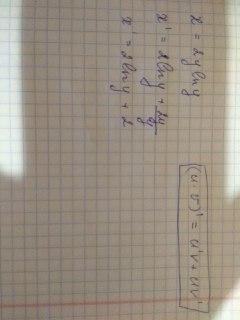 x = 2y ln y
x' = 2 ln y + 2y/y
x' = 2 ln y + 2
(u·v)' = u'v + uv'